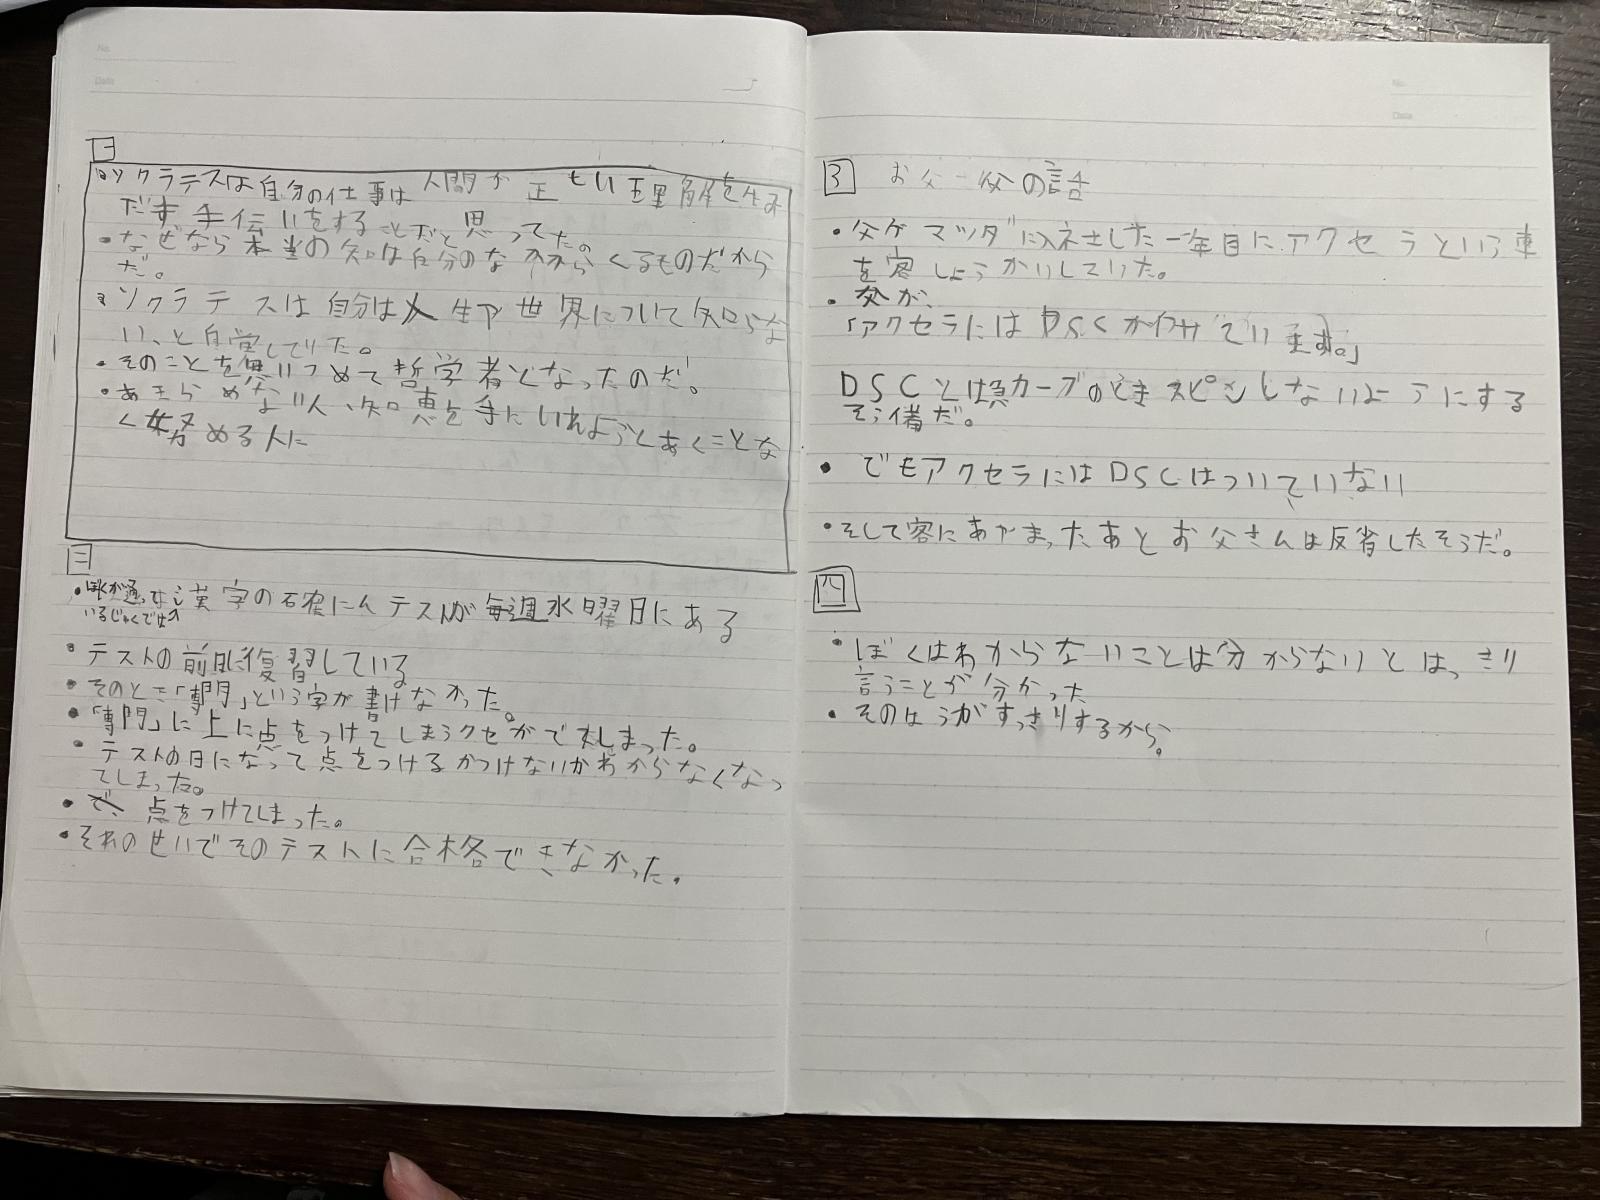 No.
Date
一
・ソクラテスは自分の仕事は人間が正しい理解を生み
だす手伝いをすることだと思ってたの
・なぜなら本当の知は自分のなかからくるものだから
だ。
・ソクラテスは自分は人生や世界について知らな
い、と自覚していた。
・そのことを思いつめて哲学者となったのだ。
・あきらめない人、知恵を手にいれようとあくことな
く努める人に
二
・ぼくが通って
いるじゅくでは
漢字の石確にんテストが毎週水曜日にある
・テストの前日に復習している
・そのとき「専門」という字が書けなかった。
・「専門」に上に点をつけてしまうクセがでてしまった。
・テストの日になって点をつけるかつけないかわからなくなっ
てしまった。
・点をつけてしまった。
・それのせいでそのテストに合格できなかった。
No.
Date
3 お父の話
・父がマツダに入社した一年目にアクセラという車
を客しょうかいしていた。
・父が、
「アクセラにはDSCがついています。」
DSCとは急カーブのときスピンしないようにする
そう備だ。
・でもアクセラにはDSCはついていない
・そして客にあやまったあとお父さんは反省したそうだ。
四
・ぼくはわからないことは分からないとはっきり
言うことが分かった
・そのほうがすっきりするから。